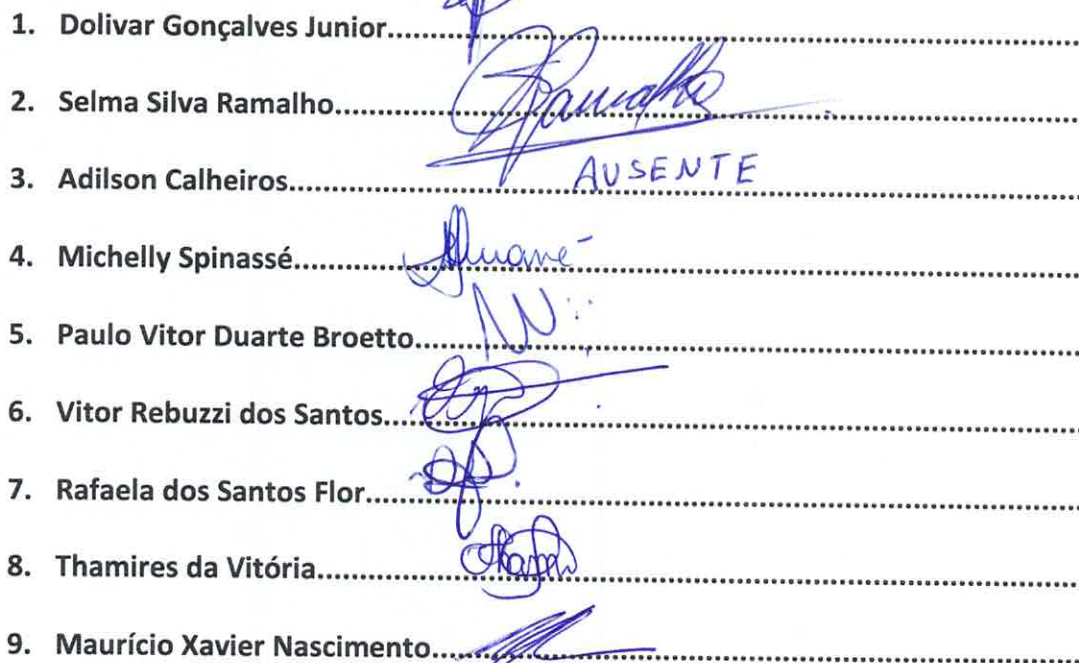 1. Dolivar Gonçalves Junior
2. Selma Silva Ramalho Ramalho
3. Adilson Calheiros AUSENTE
4. Michelly Spinassé
5. Paulo Vitor Duarte Broetto
6. Vitor Rebuzzi dos Santos
7. Rafaela dos Santos Flor
8. Thamires da Vitória
9. Maurício Xavier Nascimento